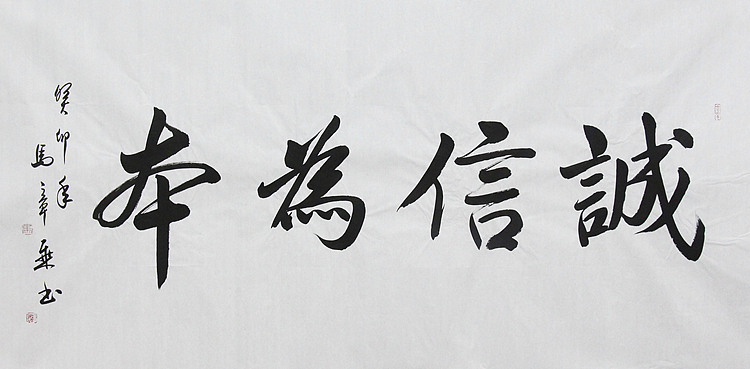 誠信為本
癸卯年
馬章乘书